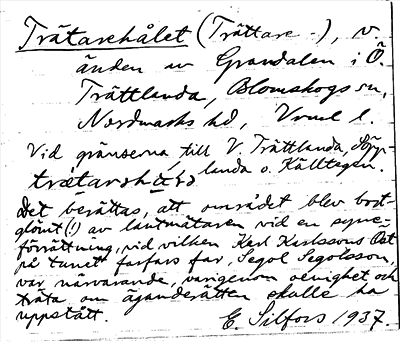 Trätarehålet (Trättare -), v.
änden av Grandalen i Ö.
Trättlanda, Blomskogs sn,
Nordmarks hd, Vrml l.
Vid gränserna till V. Trättlanda,
landa o. Källtegen.
Det berättas, att området blev bort-
glömt (!) av lantmätaren vid en syne-
förrättning, vid vilken Karl Karlssons Öst
på tunet farfars far, Segol Segolsson,
var närvarande, varigenom oenighet och
träta om äganderätten skulle ha
uppstått.
E. Silfors 1937.